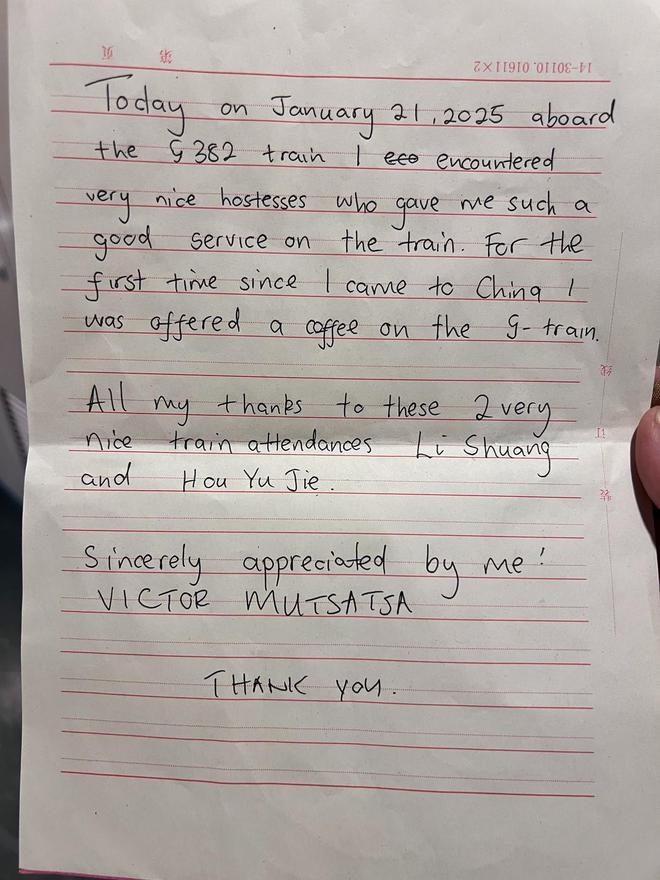 页 第
14-30110.01611×2
Today on January 21, 2025 aboard
the G 382 train I eco encountered
very nice hostesses who gave me such a
good service on the train. For the
first time since I came to China I
was offered a coffee on the G-train.
线
All my thanks to these 2 very
nice train attendances Li Shuang
订
and Hou Yu Jie.
装
Sincerely appreciated by me!
VICTOR MUTSATSA
THANK YOU.